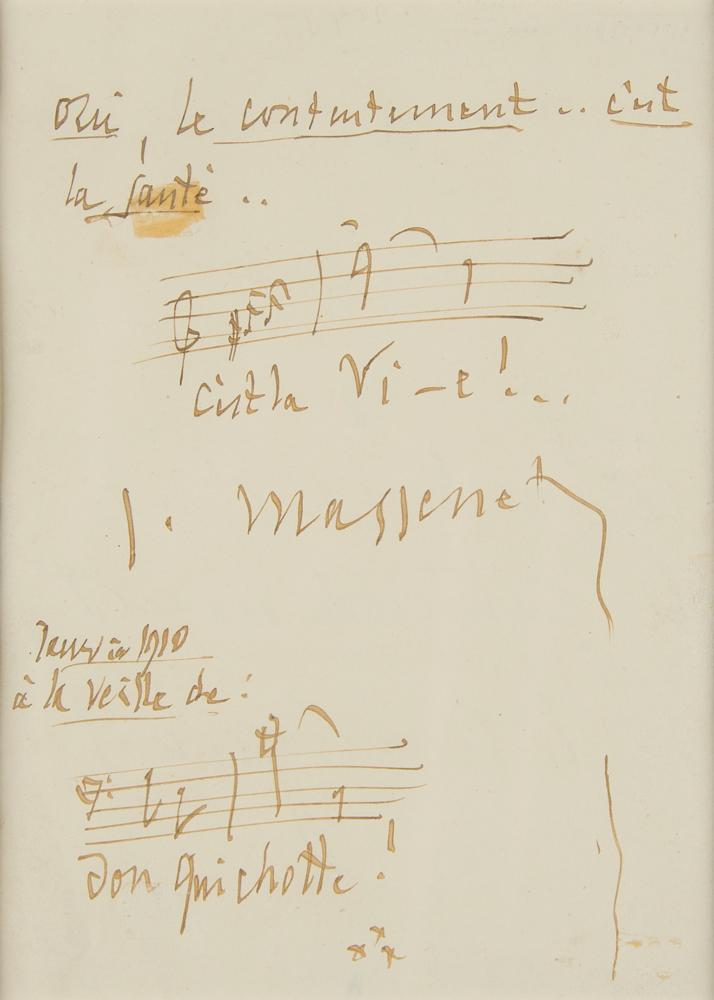 Oui, le contentement .. c'est
la santé ..
c'est la Vi - e !...
J. Massenet
Janvier 1910
à la veille de :
Don Quichotte !